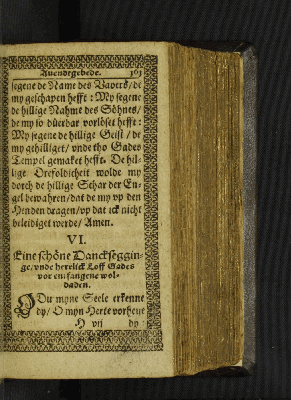 Auendegebede. 163
segene de Name des Vaders/ de
my geschapen hefft: My segene
de hillige Nahme des Söhnes/
de my so düerbar vorlöset hefft:
My segene de hillige Geist / de
my gehilliget/ vnde tho Gades
Tempel gemaket hefft. De hil-
lige Drefoldicheit wolde my
dorch de hillige Schar der En-
gel bewahren/ dat de my vp den
Henden dragen/ vp dat ick nicht
beleidiget werde/ Amen.
VI.
Eine schöne Danckseggin-
ge/ vnde herrlick Loff Gades
vor entfangene wol-
daden.
DU myne Seele erkenne
dy/ O myn Herte vorhene
H vij dy